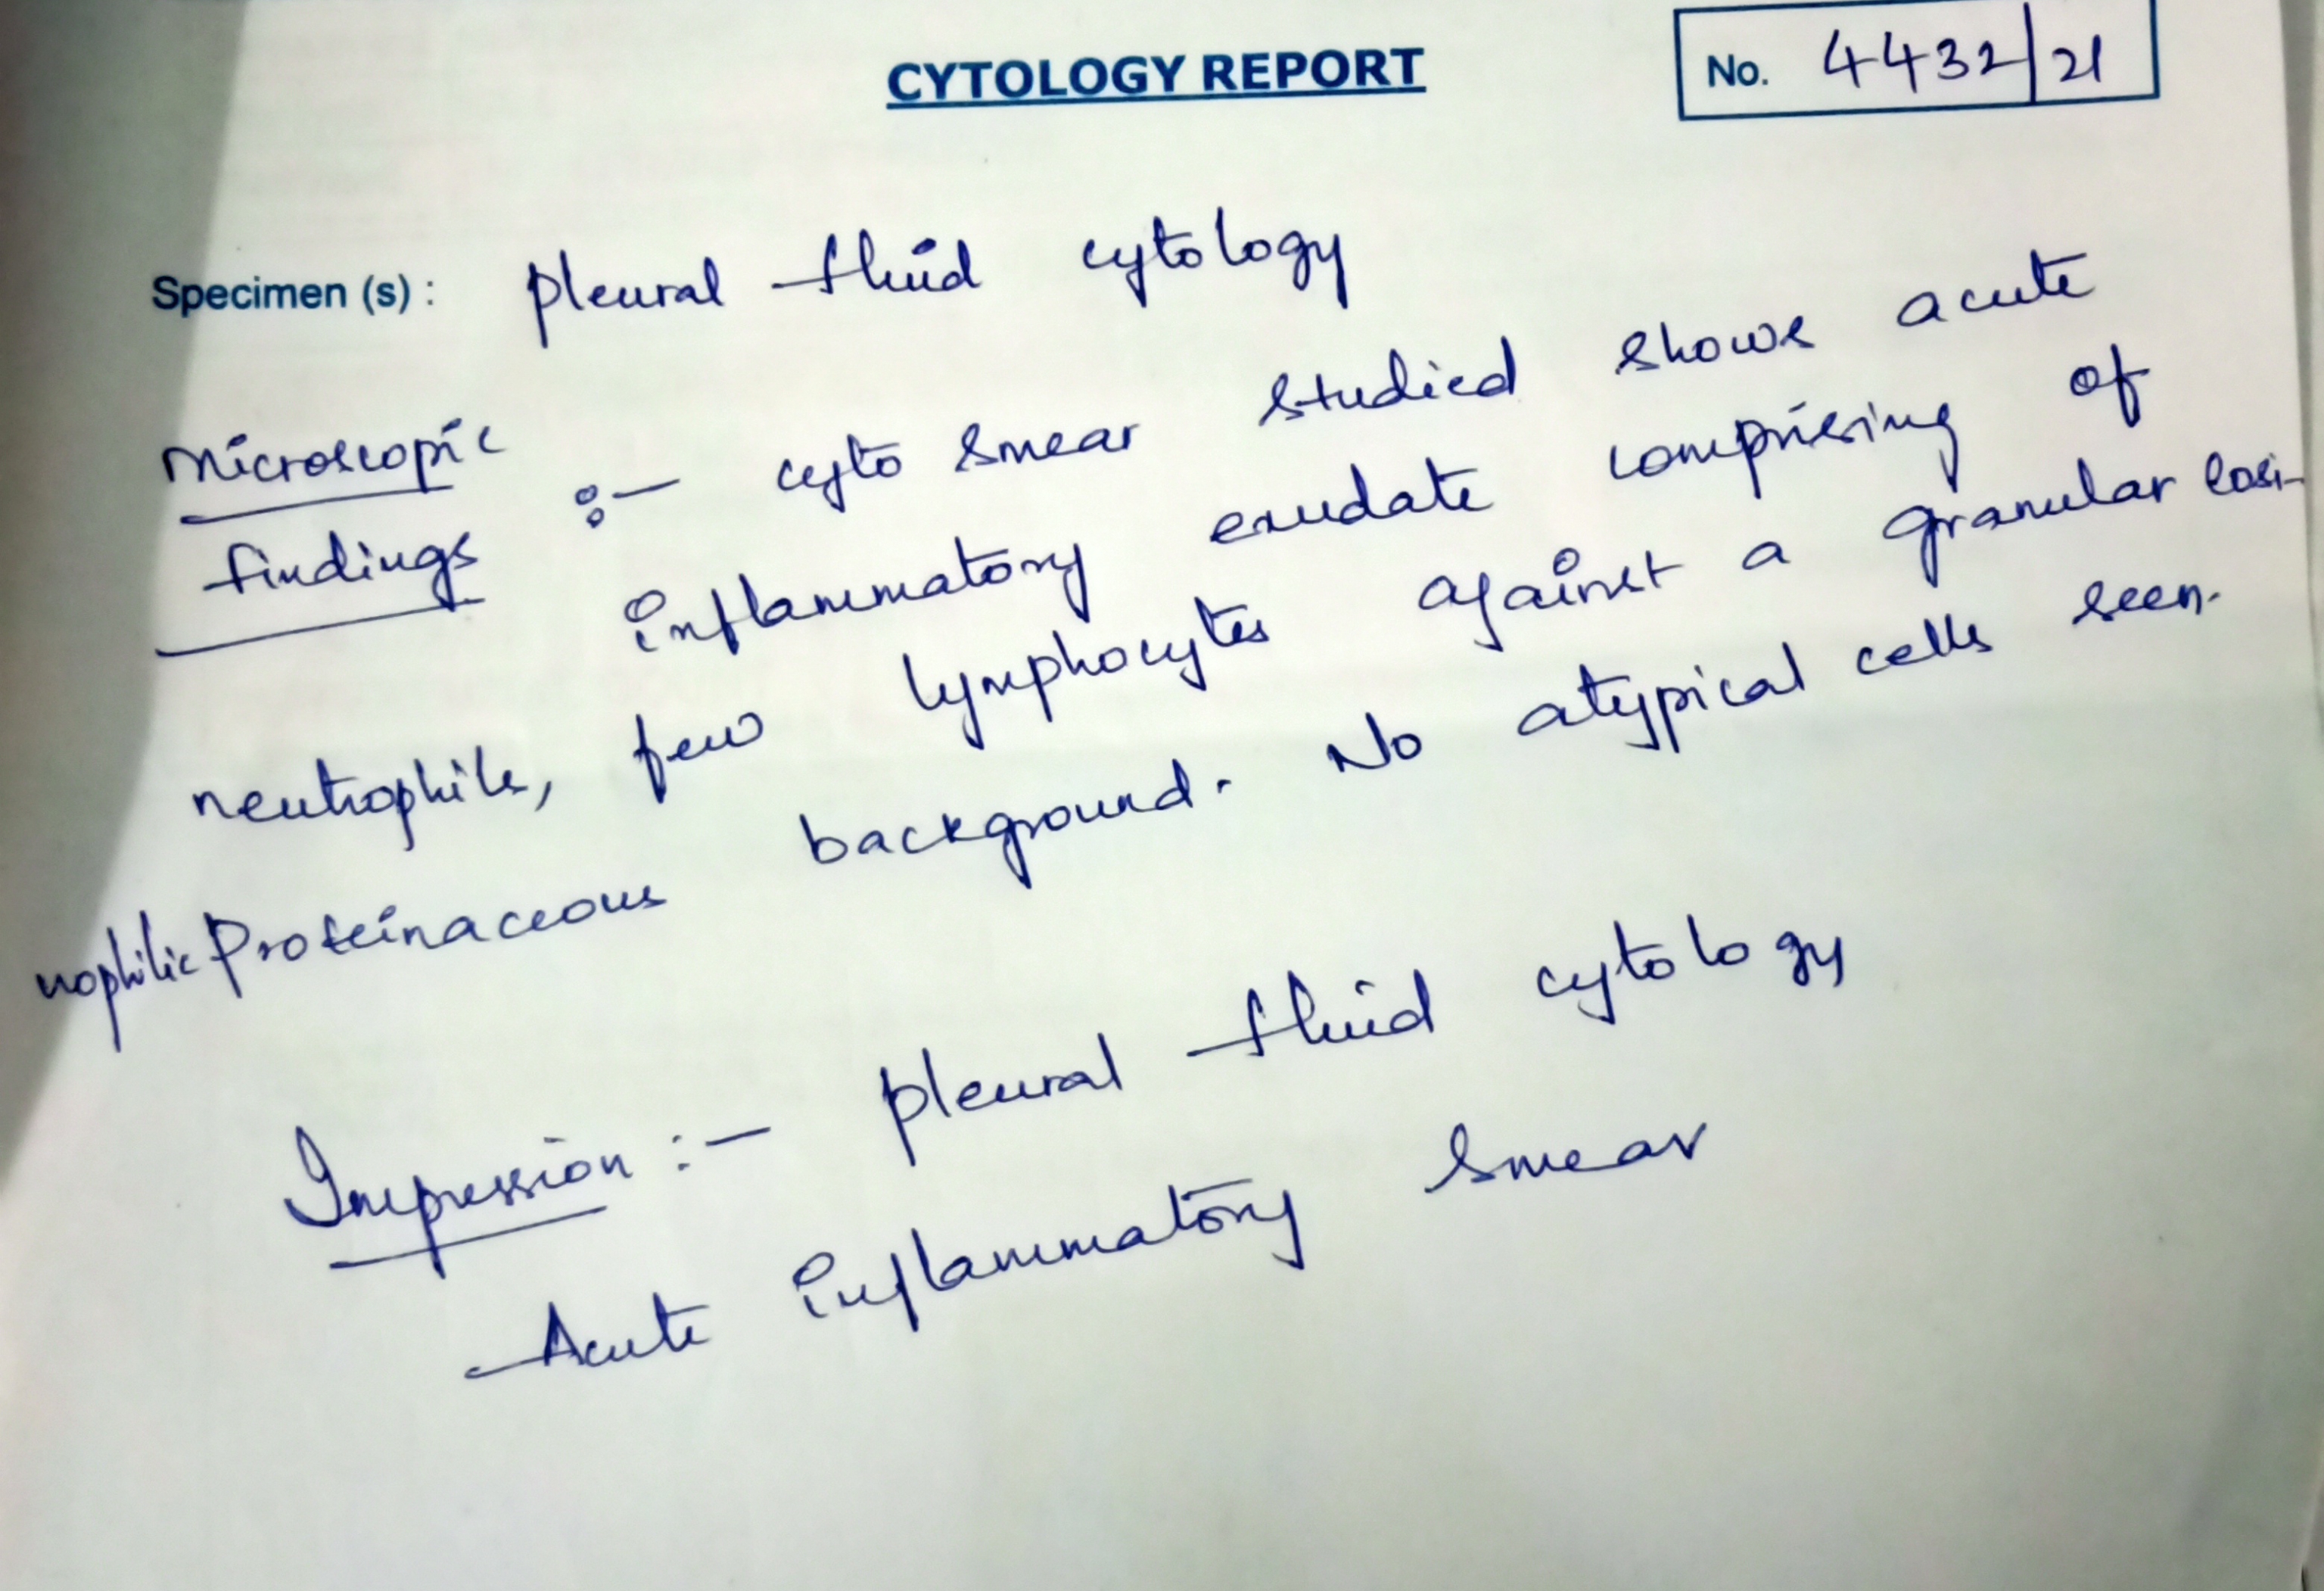 CYTOLOGY REPORT
No. 4432/21
Specimen (s) : Pleural fluid cytology
Microscopic findings :- cyto smear studied shows acute
inflammatory exudate comprising of
neutrophils, few lymphocytes against a granular eosi-
nophilic Proteinaceous background. No atypical cells seen.
Impression :- Pleural fluid cytology
Acute inflammatory smear